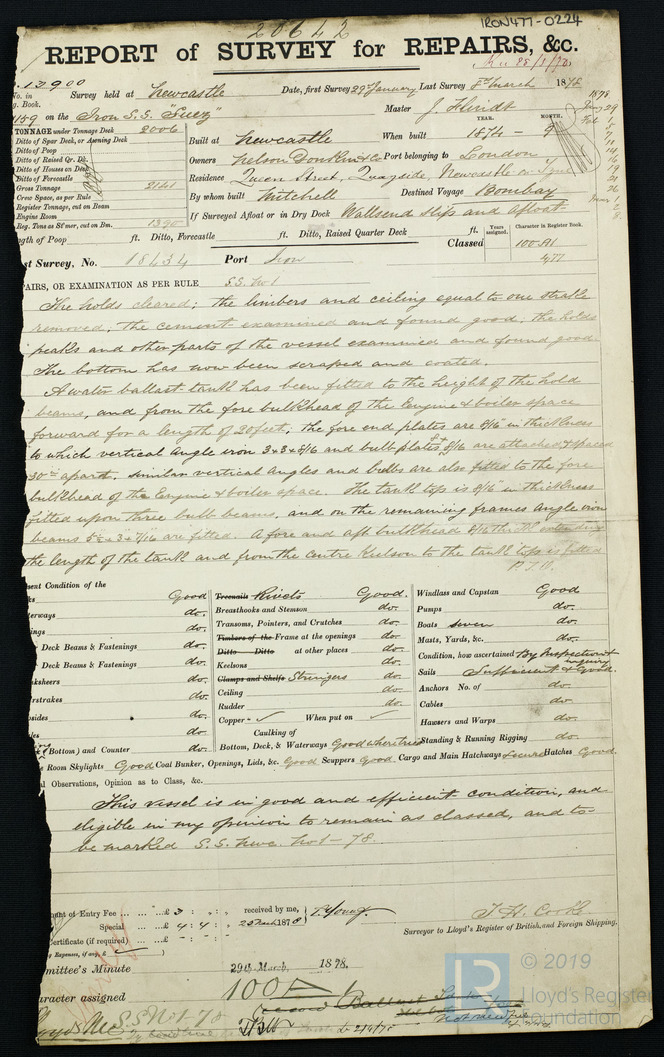 20642
IRON477-0224
REPORT of SURVEY for REPAIRS, &c.
13900
Survey held at Newcastle Date, first Survey 29 January Last Survey 8th March 1878
on the Iron S.S. "Suez" Master J. Hindt
TONNAGE under Tonnage Deck 2006
Ditto of Spar Deck, or Awning Deck
Ditto of Poop
Ditto of Raised Qr. Dk.
Ditto of Houses on Deck
Ditto of Forecastle
Gross Tonnage 2141
Crew Space, as per Rule
Register Tonnage, cut on Beam
Engine Room
Reg. Tons as St'mer, cut on Bm. 1390
YEAR.
Built at Newcastle When built 1874 - 9
Owners Nelson Donkin & Co Port belonging to London
Residence Queen Street, Quayside, Newcastle on Tyne
By whom built Mitchell Destined Voyage Bombay
If Surveyed Afloat or in Dry Dock Wallsend Slip and afloat
1878
Length of Poop ft. Ditto, Forecastle ft. Ditto, Raised Quarter Deck ft.
Classed Years assigned. Character in Register Book.
100 A1
4,77
st Survey, No. 18434 Port Iron
AIRS, OR EXAMINATION AS PER RULE S.S. No 1
The holds cleared; the limbers and ceiling equal to one strake
removed, the cement examined and found good, the holds
peaks and other parts of the vessel examined and found good.
The bottom has now been scraped and coated.
A water ballast tank has been fitted to the height of the hold
beams, and from the fore bulkhead of the Engine & boiler space
forward for a length of 20 feet, the fore end plates are 8/16 in thickness
to which vertical angle iron 3x3x8/16 and bulb plates 8x8/16 are attached & spaced
30 ins apart, similar vertical angles and bulbs are also fitted to the fore
bulkhead of the Engine & boiler space. The tank top is 8/16" in thickness
fitted upon three bulb beams, and on the remaining frames angle iron
beams 5½ x 3 x 7/16 are fitted. A fore and aft bulkhead 8/16 thick extending
the length of the tank and from the centre Keelson to the tank top is fitted
P.T.O.
sent Condition of the
Good
do.
Deck Beams & Fastenings do.
Deck Beams & Fastenings do.
ksheers do.
rstrakes do.
sides do.
do.
(Bottom) and Counter do.
Treenails Rivets Good.
Breasthooks and Stemson do.
Transoms, Pointers, and Crutches do.
Timbers of the Frame at the openings do.
Ditto Ditto at other places do.
Keelsons do.
Clamps and Shelfs Stringers do.
Ceiling do.
Rudder do.
Copper - ✓ When put on ✓
Caulking of
Bottom, Deck, & Waterways Good where tried
Windlass and Capstan Good
Pumps do.
Boats seven do.
Masts, Yards, &c. do.
Condition, how ascertained By Inspection & inquiry
Sails Sufficient & Good.
Anchors No. of do.
Cables do.
Hawsers and Warps do.
Standing & Running Rigging do.
Room Skylights Good Coal Bunker, Openings, Lids, &c. Good Scuppers Good Cargo and Main Hatchways Secure Hatches Good.
l Observations, Opinion as to Class, &c.
This vessel is in good and efficient condition, and
eligible in my opinion to remain as classed, and to
be marked S.S. Newc. No 1 - 78.
ount of Entry Fee £ 3 : - : -
Special £ 4 : 4 : -
ertificate (if required)
received by me, T. Young.
1878
T. H. Cooke
Surveyor to Lloyd's Register of British and Foreign Shipping.
mittee's Minute 29th March, 1878.
aracter assigned 100 A
S.S No 1 - 78
2/4/78
© 2019
Lloyd's Register
Foundation